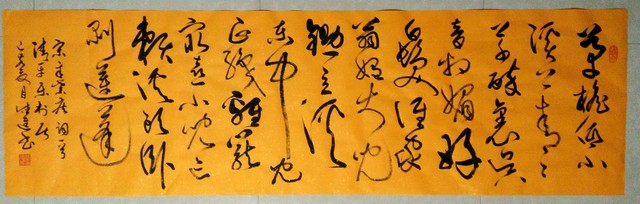 茅檐低小
溪上青青
草醉里吴
音相媚好
白发谁家
翁媪大儿
锄豆溪
东中儿
正织鸡笼
最喜小儿亡
赖溪头卧
剥莲蓬
宋辛弃疾词一首
清平乐村居
己亥夏月书